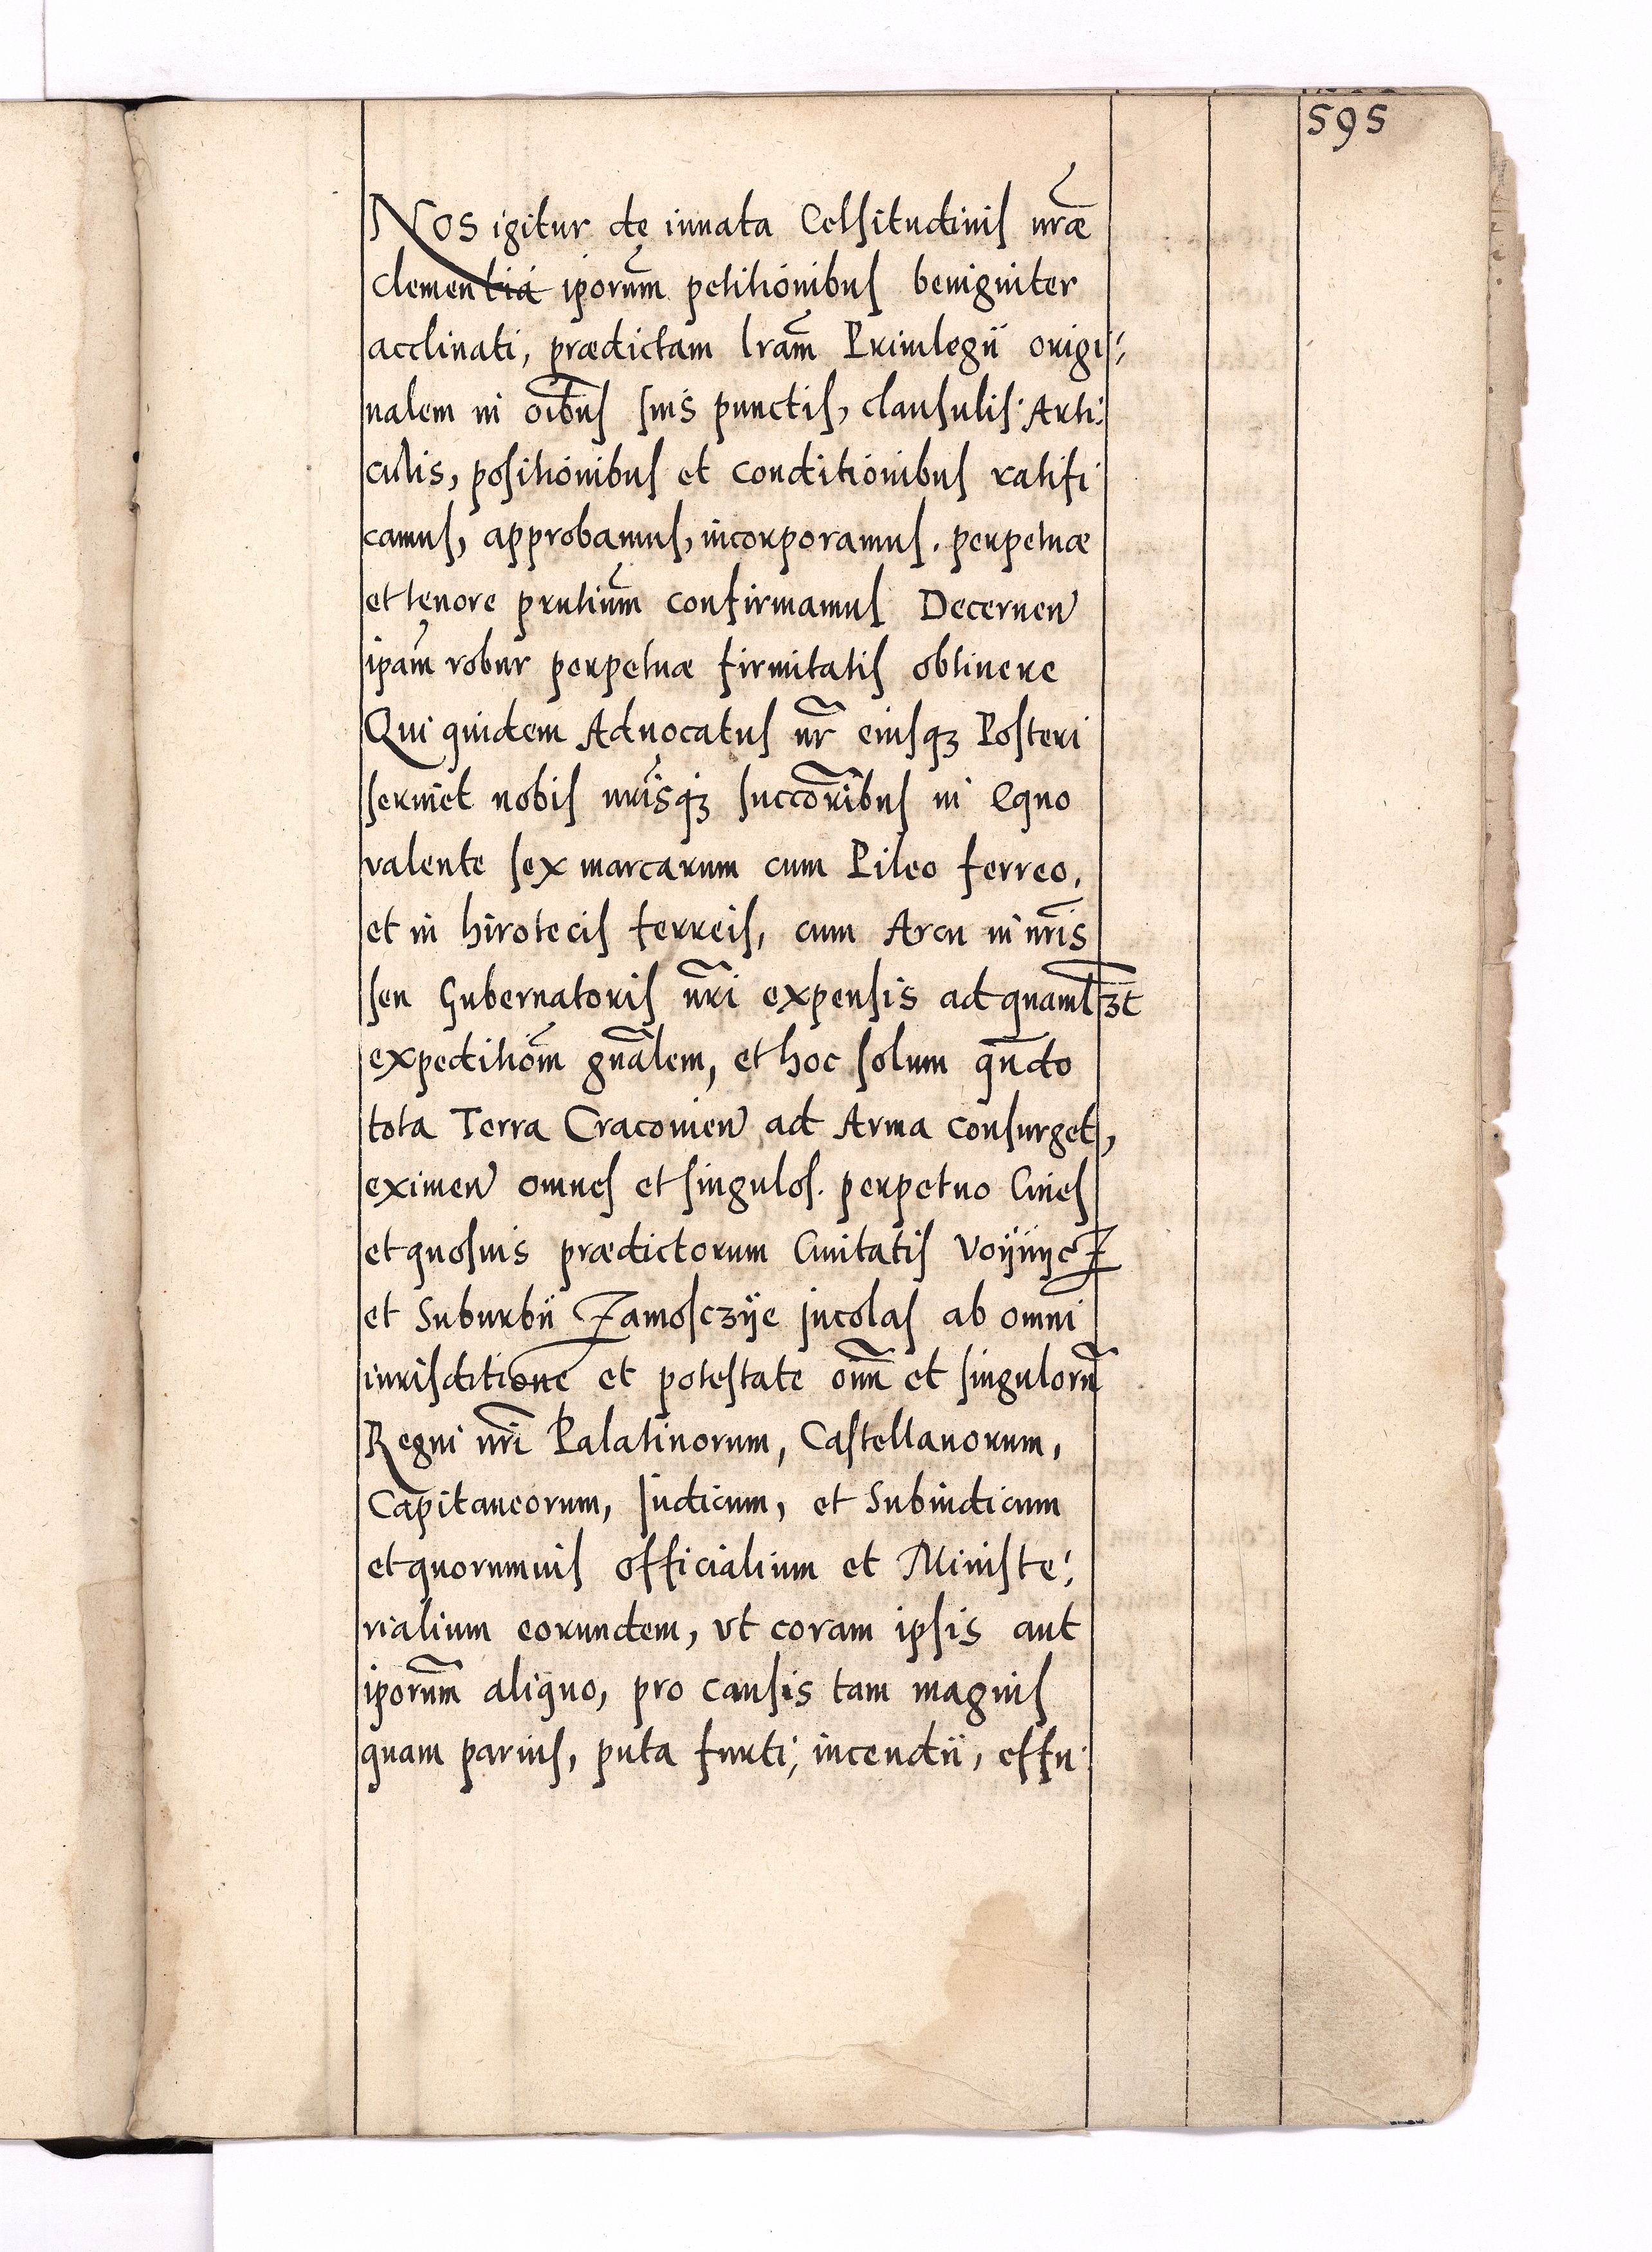 595
Nos igitur de innata Celsitudinis nrae
clementia iporum petitionibus benigniter
acclinati, praedictam lram Priuilegii origi:
nalem in oibus suis punctis, clausulis Arti:
culis, positionibus et conditionibus ratifi
camus, approbamus, incorporamus. perpetuae
et tenore pntium confirmamus Decernen
ipam robur perpetuae firmitatis obtinere
Qui quidem Aduocatus nr eiusq3 Posteri
seruiet nobis nrisq3 succoribus in Equo
valente sex marcarum cum Pileo ferreo,
et in hirotecis ferreis, cum Arcu in nris
seu Gubernatoris nri expensis ad quaml3t
expeditiom gnalem, et hoc solum qndo
tota Terra Cracouien ad Arma consurget,
eximen omnes et singulos. perpetuo Ciues
et quosuis praedictorum Ciuitatis Voijnycz
et Suburbii Zamosczije jncolas ab omni
iurisditione et potestate oim et singulorum
Regni nri Palatinorum, Castellanorum,
Capitaneorum, Judicum, et Subiudicum
et quorumuis officialium et Ministe:
rialium eorundem, vt coram ipsis aut
iporum aliquo, pro causis tam magnis
quam paruis, puta furti, incendii, effu: